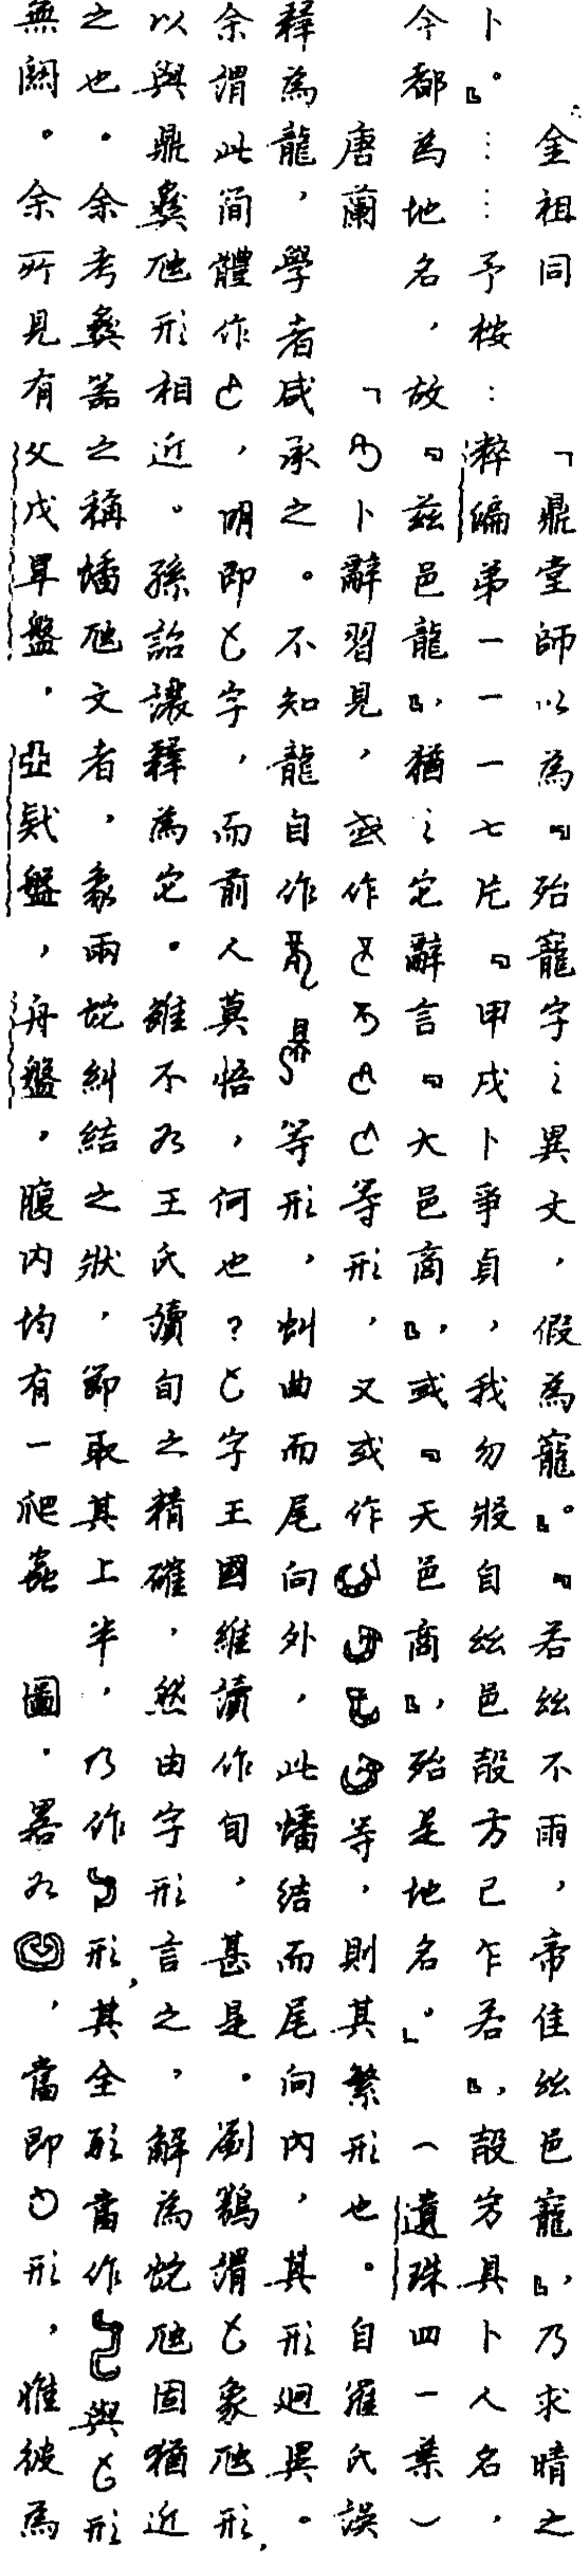 金祖同　「鼎堂師以為『殆寵字之異文，假為寵』。『若茲不雨，帝隹茲邑寵』，乃求晴之
卜。』……予桉：粹編弟一一一七片『甲戌卜爭貞，我勿殸自茲邑㱿方已乍若』，㱿㝑具卜人名，
今都為地名，故『茲邑龍』，猶之它辭言『大邑商』，或『天邑商』，殆是地名。」（遺珠四一葉）
唐蘭　「卜辭習見，或作等形，又或作等，則其繁形也。自羅氏誤
釋為龍，學者咸承之。不知龍自作等形，糾曲而尾向外，此蟠結而尾向內，其形迥異。
余謂此簡體作，明即字，而前人莫悟，何也？字王國維讀作旬，甚是。劉鶚謂象虺形，
以與鼎彝虺形相近。孫詒讓釋為它。雖不如王氏讀旬之精確，然由字形言之，解為蛇虺固猶近
之也。余考彝器之稱蟠虺文者，象兩蛇糾結之狀，節取其上半，乃作形，其全形當作與形
無闕。余所見有父戊盤．亞盤，舟盤，腹內均有一爬蟲圖．畧如，當即形，惟彼為